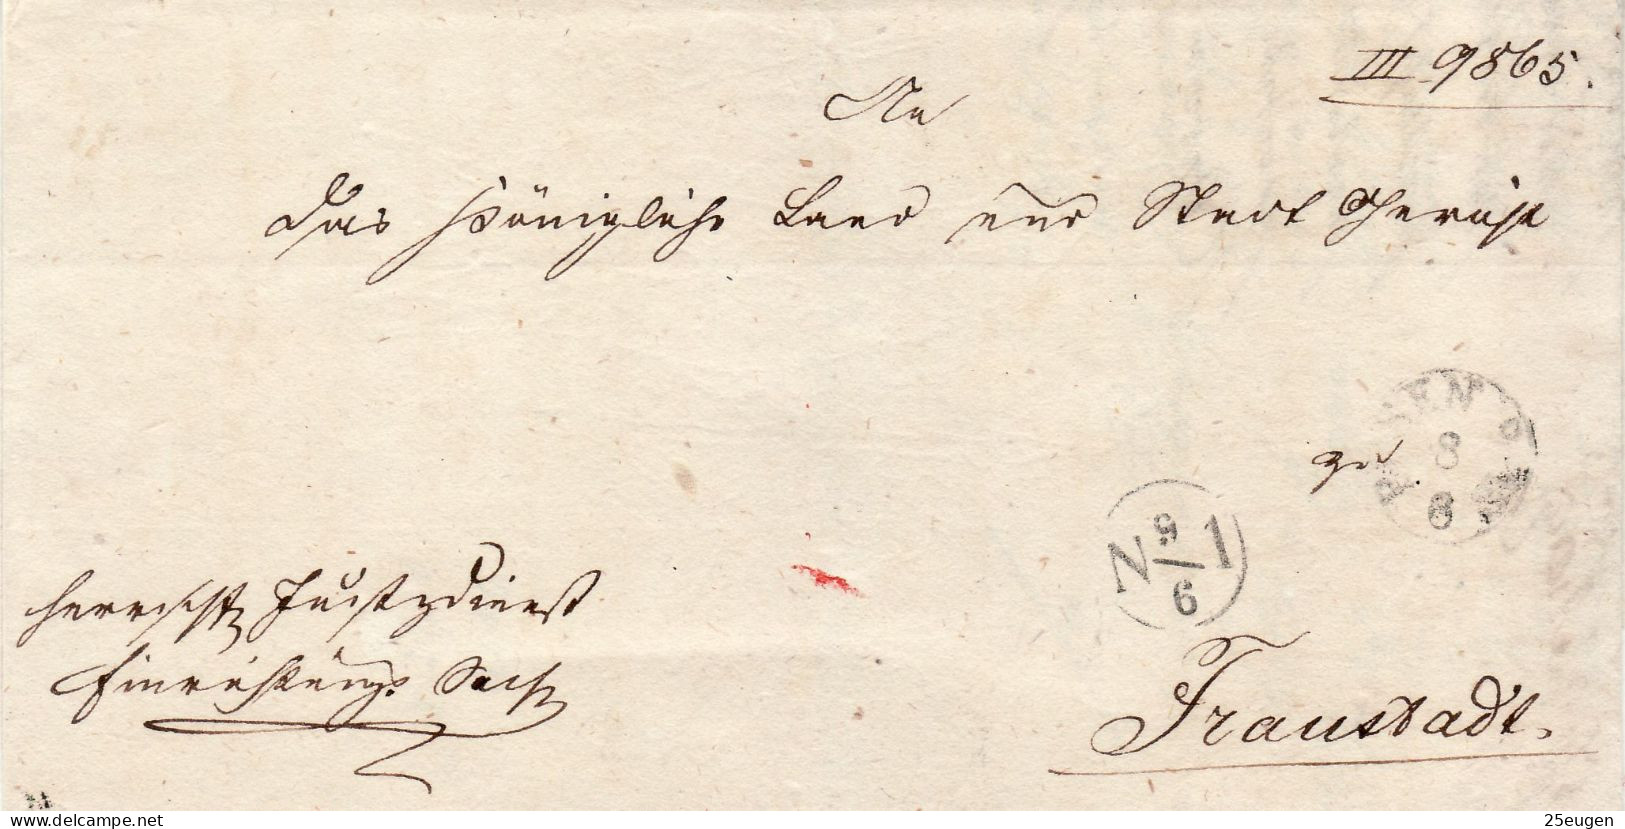 III 9865.
An
das Königliche Land und Stadt Gericht
POSEN
8
6
zu
N 9/6 1
Herrschftl Justizdienst
Einrichtungs Sache
Fraustadt.
delcampe.net
25eugen